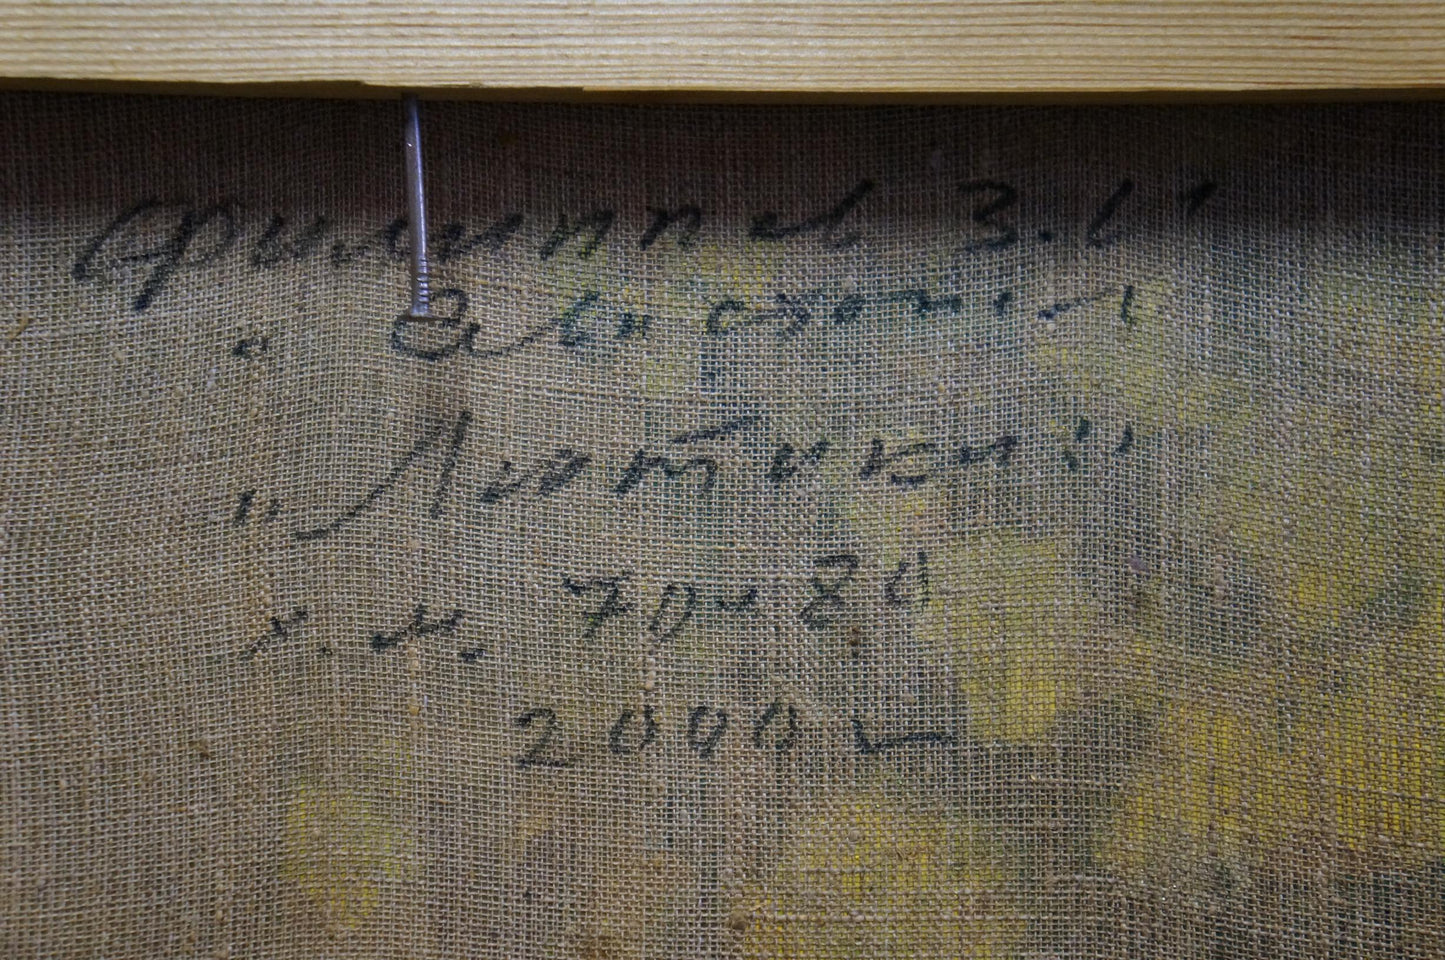 Филиппов
"Лютики"
х. м. 70-80
2000 г